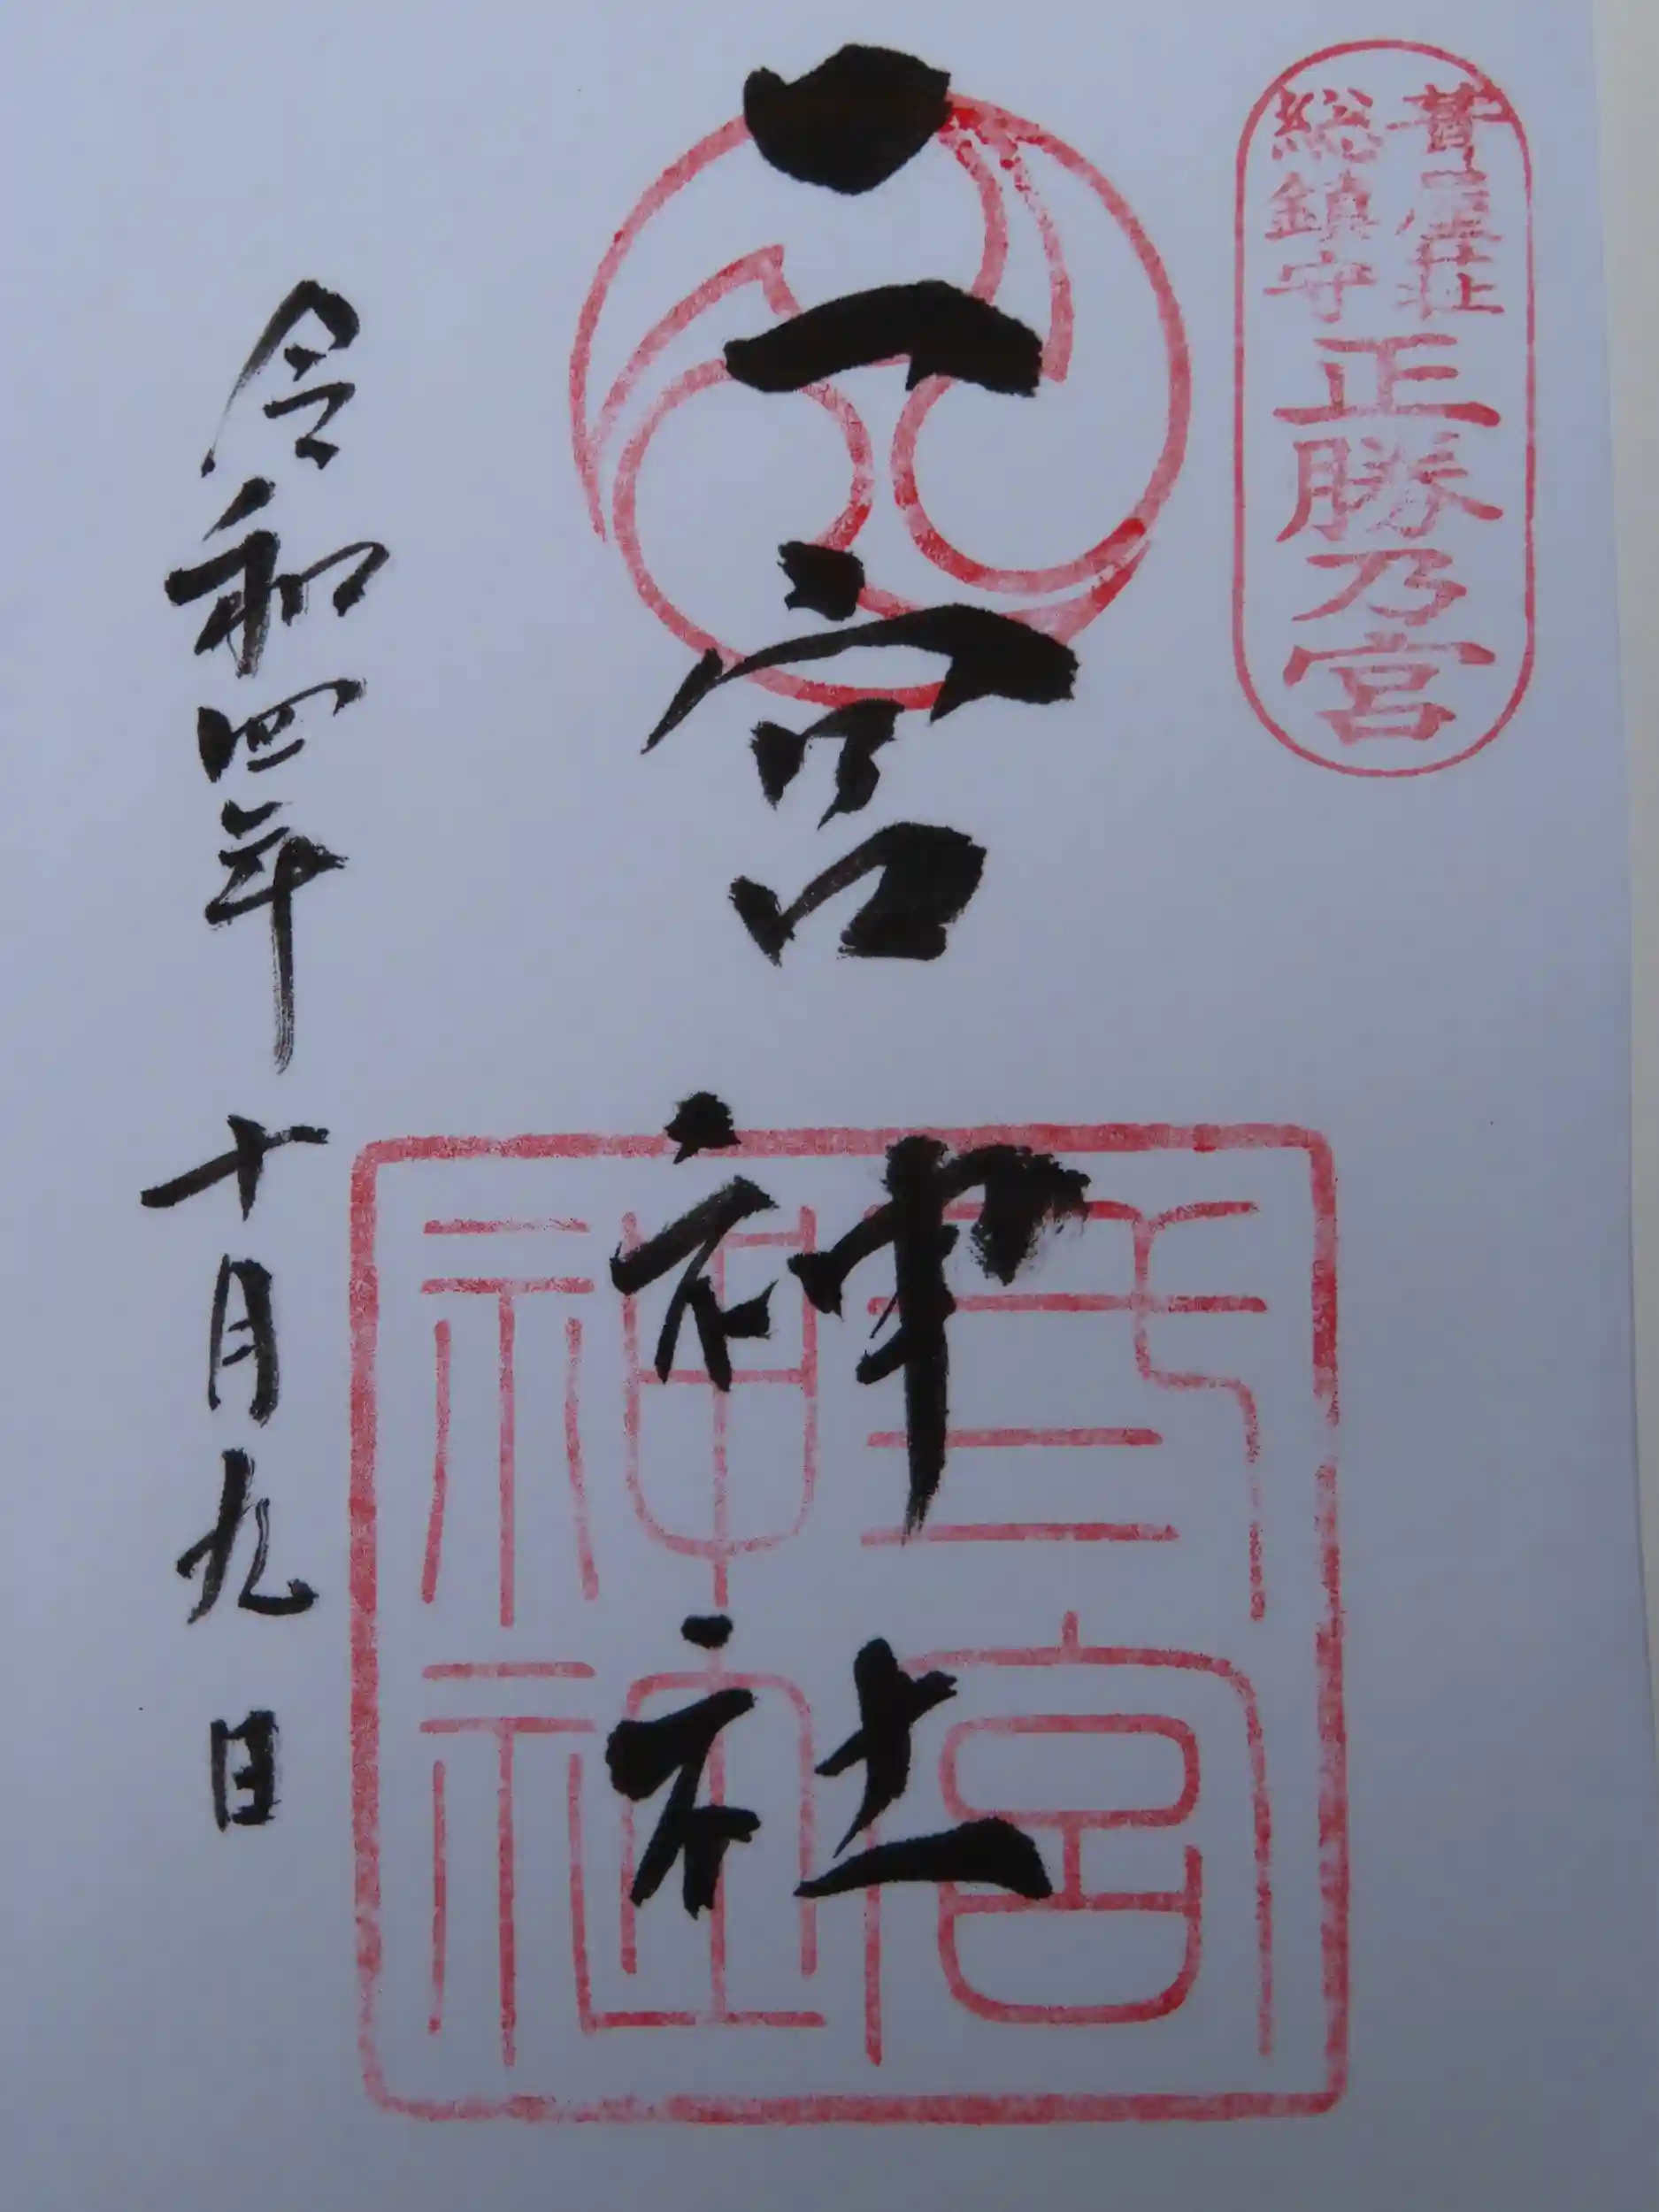 葺屋荘
総鎮守
正勝乃宮
二宮神社
弍宮
神社
令和四年十月九日